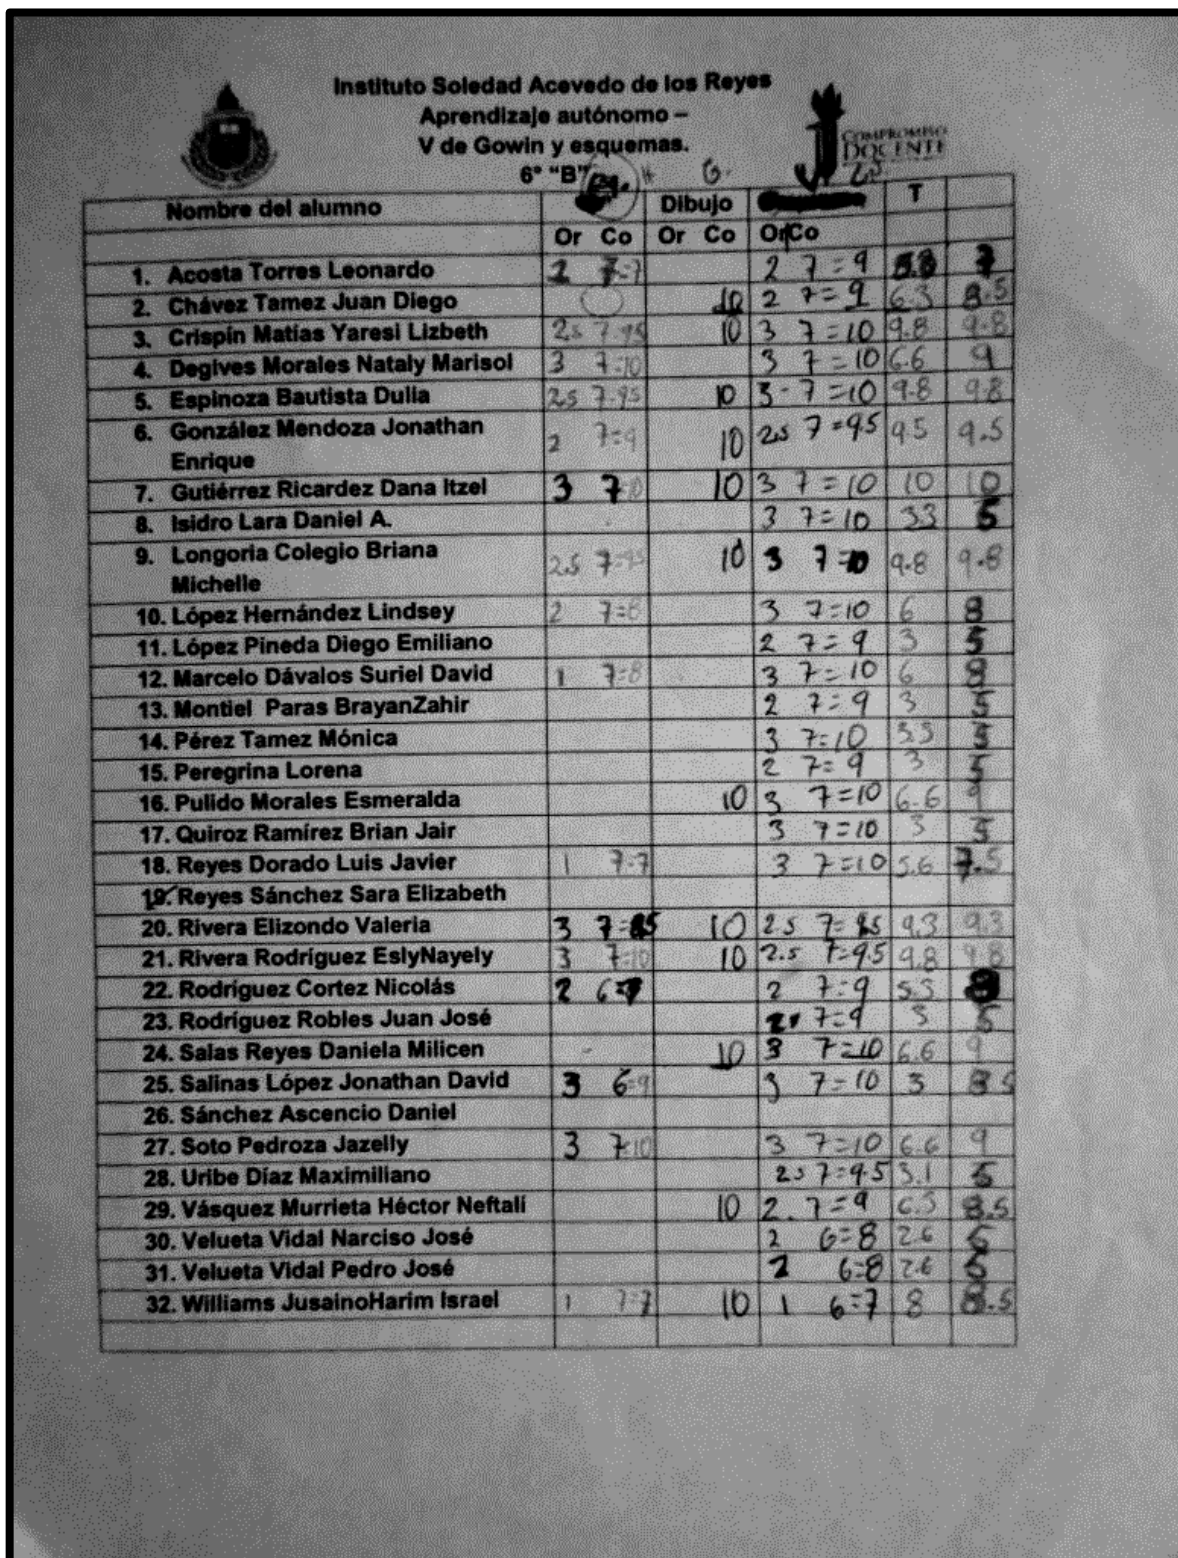 Instituto Soledad Acevedo de los Reyes
Aprendizaje autónomo –
V de Gowin y esquemas.
6° "B"
G.
COMPROMISO
DOCENTE
Nombre del alumno Dibujo T
Or Co Or Co Or Co
1. Acosta Torres Leonardo 2 7=7 2 7=9 5.8 7
2. Chávez Tamez Juan Diego 10 2 7=9 6.3 8.5
3. Crispín Matías Yaresi Lizbeth 2.5 7=95 10 3 7=10 9.8 9.8
4. Degives Morales Nataly Marisol 3 7=10 3 7=10 6.6 9
5. Espinoza Bautista Dulia 2.5 7=95 10 3-7=10 9.8 9.8
6. González Mendoza Jonathan
Enrique 2 7=9 10 2.5 7=95 9.5 9.5
7. Gutiérrez Ricardez Dana Itzel 3 7=10 10 3 7=10 10 10
8. Isidro Lara Daniel A. 3 7=10 3.3 5
9. Longoria Colegio Briana
Michelle 2.5 7=95 10 3 7=10 9.8 9.8
10. López Hernández Lindsey 2 7=8 3 7=10 6 8
11. López Pineda Diego Emiliano 2 7=9 3 5
12. Marcelo Dávalos Suriel David 1 7=8 3 7=10 6 8
13. Montiel Paras BrayanZahir 2 7=9 3 5
14. Pérez Tamez Mónica 3 7=10 3.3 5
15. Peregrina Lorena 2 7=9 3 5
16. Pulido Morales Esmeralda 10 3 7=10 6.6 9
17. Quiroz Ramírez Brian Jair 3 7=10 3 5
18. Reyes Dorado Luis Javier 1 7=7 3 7=10 5.6 7.5
19. Reyes Sánchez Sara Elizabeth
20. Rivera Elizondo Valeria 3 7= 10 2.5 7= 9.3 9.3
21. Rivera Rodríguez EslyNayely 3 7=10 10 2.5 7=9.5 9.8 9.8
22. Rodríguez Cortez Nicolás 2 6= 2 7=9 5.3 8
23. Rodríguez Robles Juan José 2 7=9 3 5
24. Salas Reyes Daniela Milicen - 10 3 7=10 6.6 9
25. Salinas López Jonathan David 3 6=9 3 7=10 3 8.5
26. Sánchez Ascencio Daniel
27. Soto Pedroza Jazelly 3 7=10 3 7=10 6.6 9
28. Uribe Díaz Maximiliano 2.5 7=9.5 3.1 5
29. Vásquez Murrieta Héctor Neftalí 10 2. 7=9 6.3 8.5
30. Velueta Vidal Narciso José 2 6=8 2.6 5
31. Velueta Vidal Pedro José 2 6=8 2.6 5
32. Williams JusainoHarim Israel 1 7=7 10 1 6=7 8 8.5